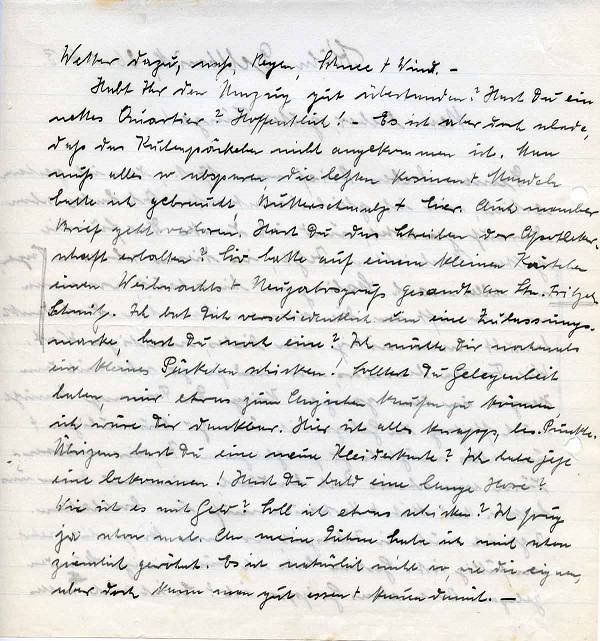 Wetter dazu, naß, Regen, Schnee + Wind. –
Habt Ihr den Umzug gut überstanden? Hast Du ein
nettes Quartier? Hoffentlich! – Es ist aber doch schade,
daß das Kuchenpäckchen nicht angekommen ist. Man
muß alles so absparen die letzten Rosinen + Mandeln
hatte ich gebraucht, Butterschmalz + Eier. Auch mancher
Brief geht verloren. Hast Du das Schreiben der Apotheker-
schaft erhalten? Sie hatte auf einem kleinen Kärtchen
einen Weihnachts + Neujahrsgruß gesandt an Stn. Fritzel
Schmitz. Ich bat Dich verschiedentlich um eine Zulassungs-
marke, hast Du noch eine? Ich möchte Dir nochmals
ein kleines Päckchen schicken. Solltest Du Gelegenheit
haben, mir etwas zum Anziehen kaufen zu können,
ich wäre Dir dankbar. Hier ist alles knapp, bes. Punkte.
Übrigens hast Du eine neue Kleiderkarte? Ich habe jetzt
eine bekommen! Hast Du bald eine lange Hose?
Wie ist es mit Geld? Soll ich etwas schicken? Ich frug
ja schon mal. An meine Zähne habe ich mich schon
ziemlich gewöhnt. Es ist natürlich nicht so, wie die eignen,
aber doch kann man gut essen + kauen damit. –